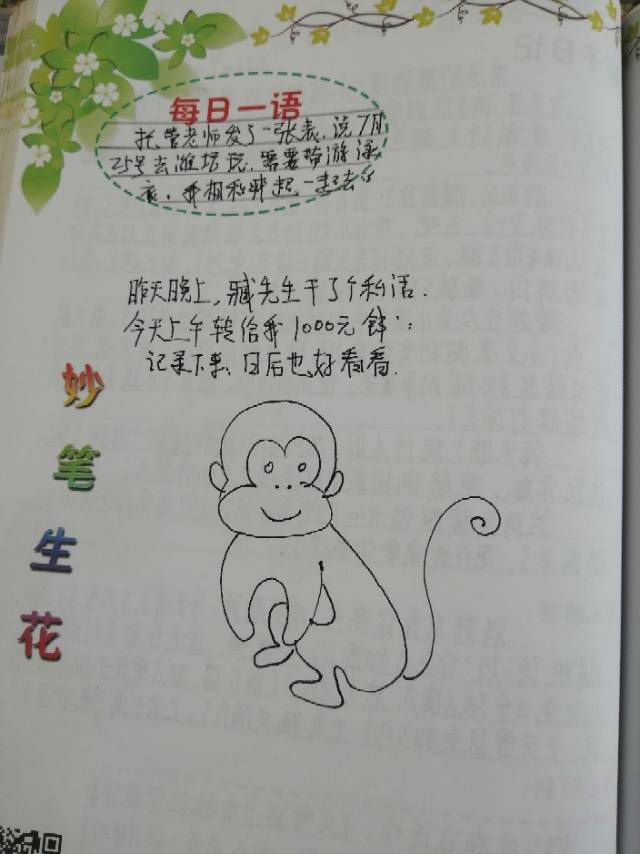 每日一语
托管老师发了一张表,说7月
25号去潍坊玩,需要带游泳
衣,
一起去
昨天晚上,臧先生干了个私活.
今天上午转给我1000元钱
记录下来,日后也好看看.
妙笔生花